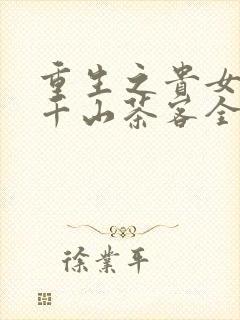 重生之貴女
千山茶客全
徐業平